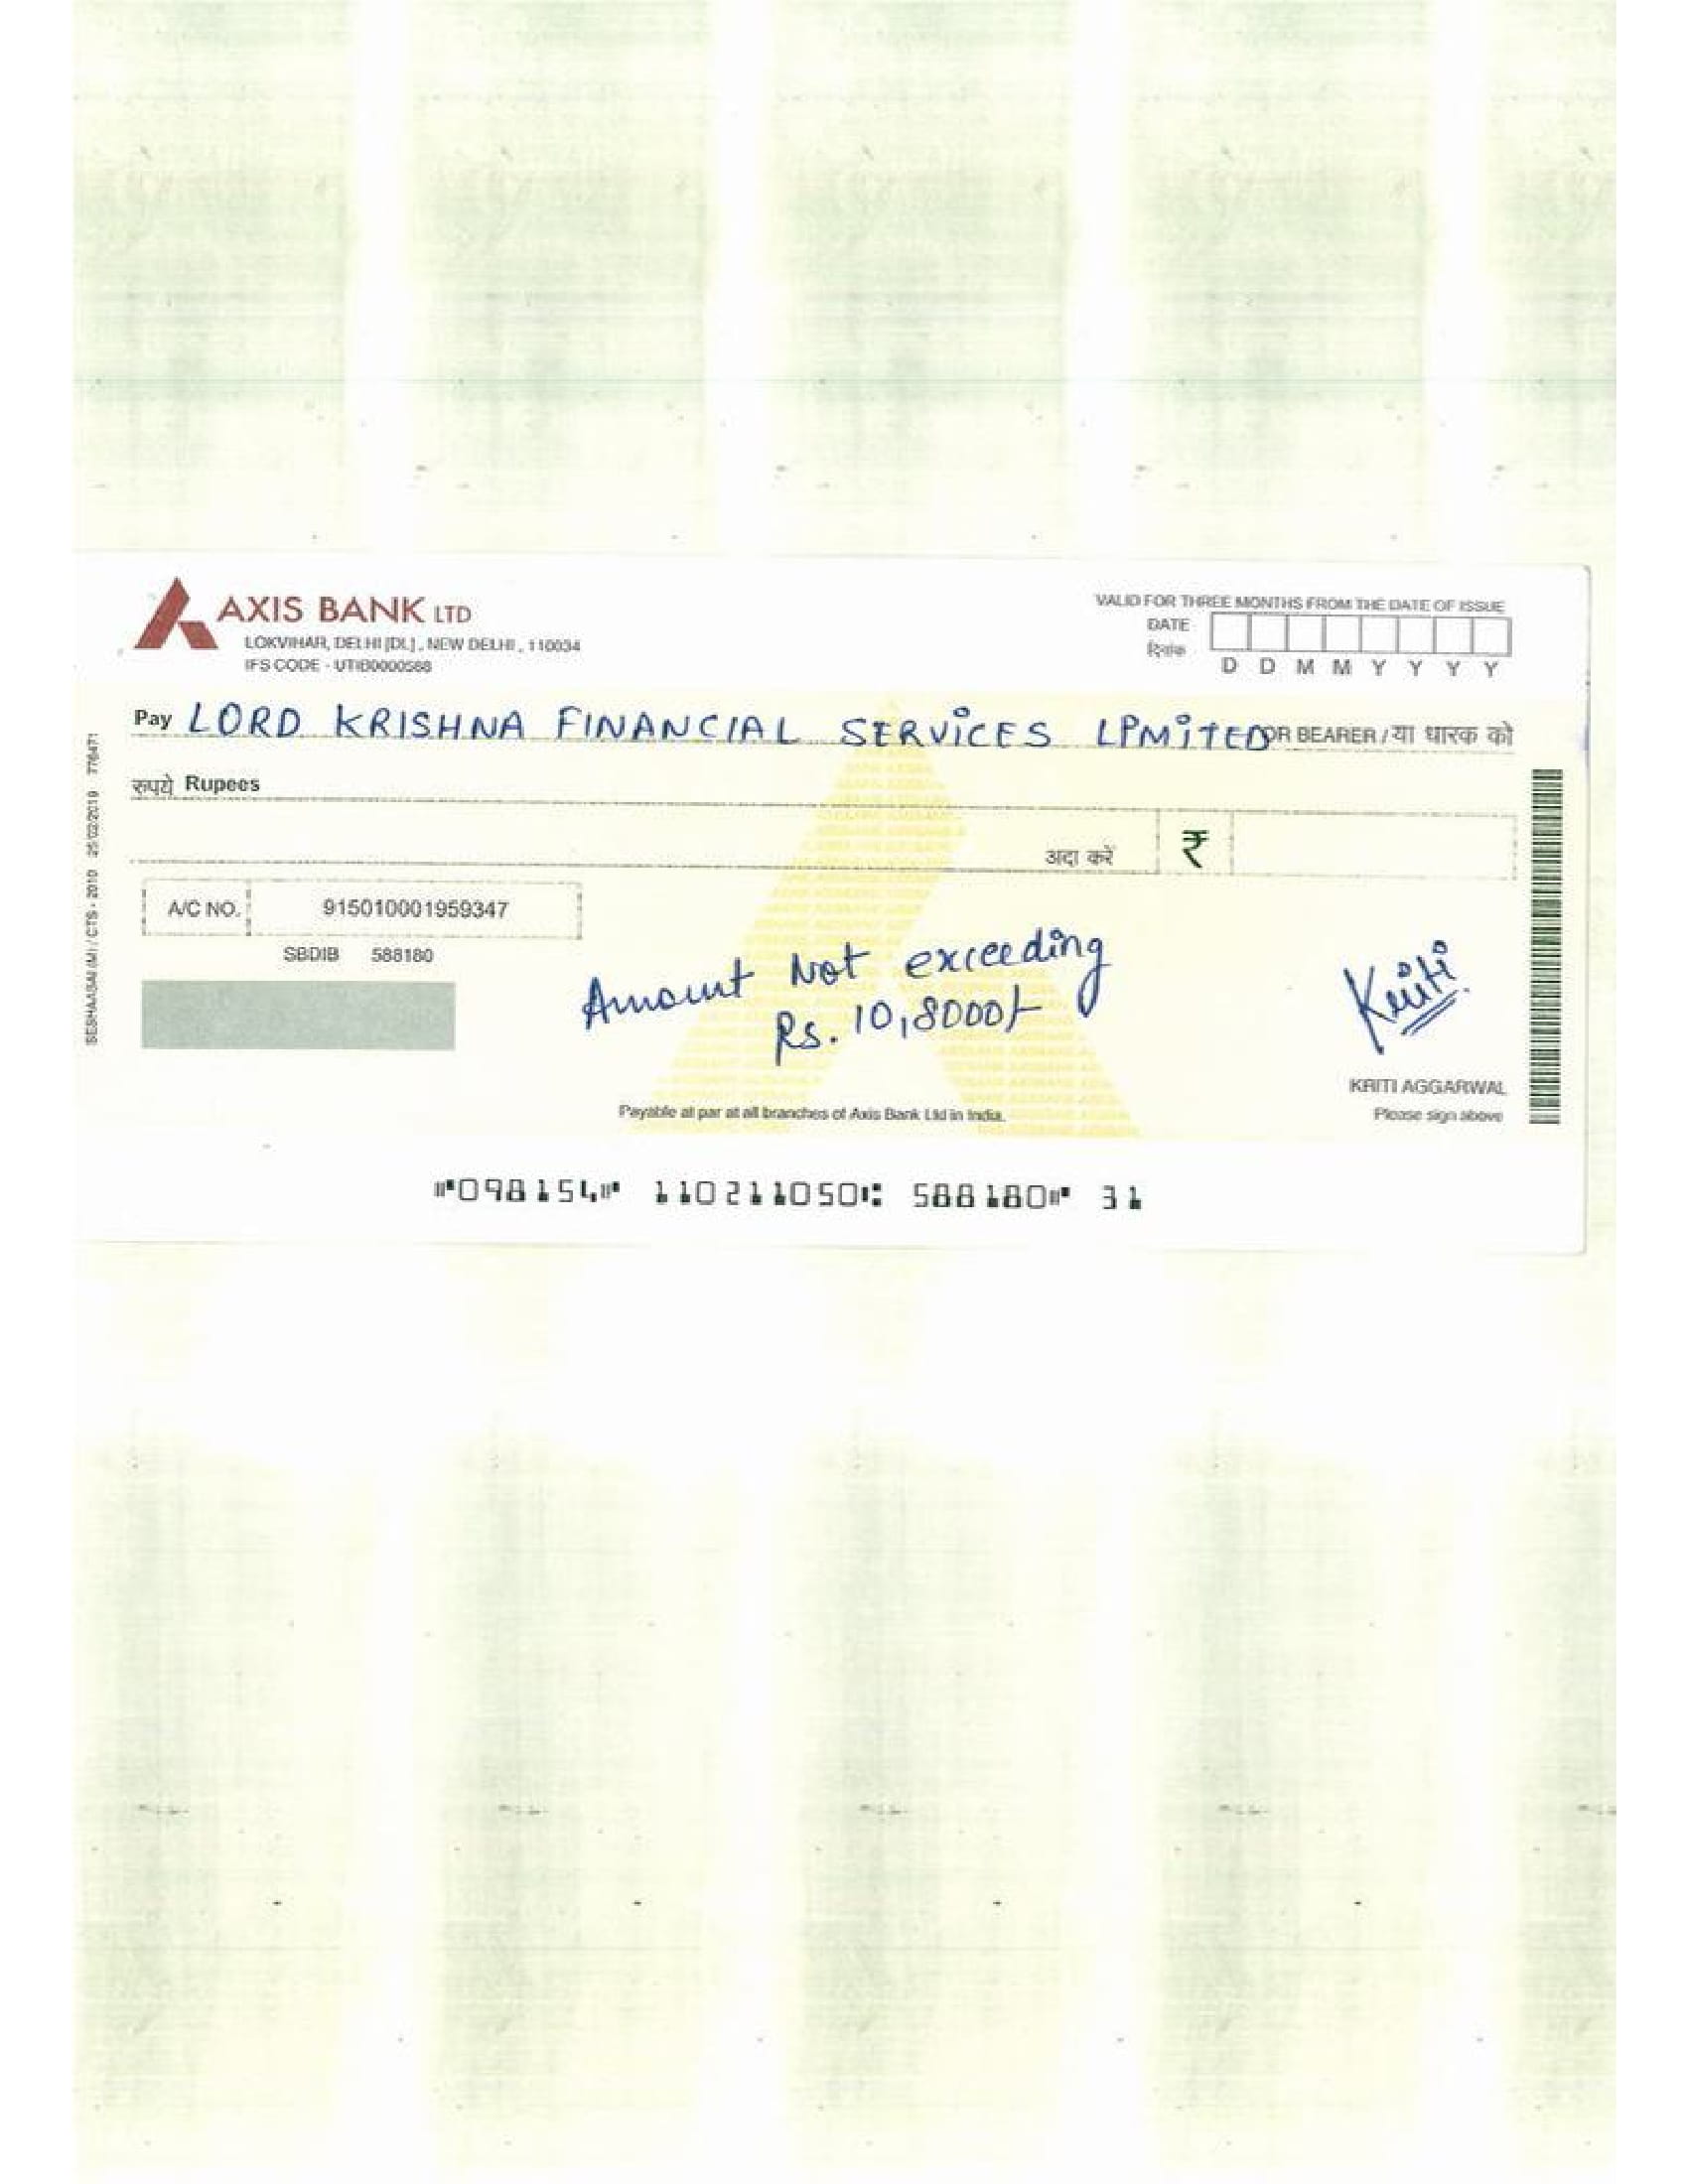 AXIS BANK LTD
LOKVIHAR, DELHI [DL], NEW DELHI, 110034
IFS CODE - UTIB0000588
VALID FOR THREE MONTHS FROM THE DATE OF ISSUE
DATE
दिनांक
D D M M Y Y Y Y
Pay LORD KRISHNA FINANCIAL SERVICES LIMITED OR BEARER / या धारक को
रुपये Rupees
अदा करें ₹
A/C NO. 915010001959347
SBDIB 588180
Amount Not exceeding
Rs. 10,8000/-
Kriti
KRITI AGGARWAL
Please sign above
Payable at par at all branches of Axis Bank Ltd in India.
SESHAASAI (M) / CTS - 2010 25/02/2019 776471
⑈098154⑈ 110211050⑆ 588180⑈ 31